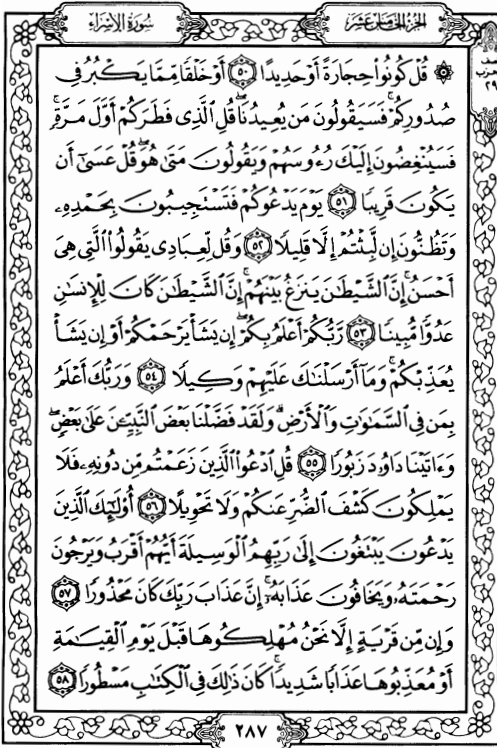 الجزء الخامس عشر
سورة الإسراء
نصف
الحزب
٢٩
۞ قُلْ كُونُوا۟ حِجَارَةً أَوْ حَدِيدًا ٥٠ أَوْ خَلْقًا مِّمَّا يَكْبُرُ فِى
صُدُورِكُمْ ۚ فَسَيَقُولُونَ مَن يُعِيدُنَا ۖ قُلِ ٱلَّذِى فَطَرَكُمْ أَوَّلَ مَرَّةٍ ۚ
فَسَيُنْغِضُونَ إِلَيْكَ رُءُوسَهُمْ وَيَقُولُونَ مَتَىٰ هُوَ ۖ قُلْ عَسَىٰٓ أَن
يَكُونَ قَرِيبًا ٥١ يَوْمَ يَدْعُوكُمْ فَتَسْتَجِيبُونَ بِحَمْدِهِۦ
وَتَظُنُّونَ إِن لَّبِثْتُمْ إِلَّا قَلِيلًا ٥٢ وَقُل لِّعِبَادِى يَقُولُوا۟ ٱلَّتِى هِىَ
أَحْسَنُ ۚ إِنَّ ٱلشَّيْطَٰنَ يَنزَغُ بَيْنَهُمْ ۚ إِنَّ ٱلشَّيْطَٰنَ كَانَ لِلْإِنسَٰنِ
عَدُوًّا مُّبِينًا ٥٣ رَّبُّكُمْ أَعْلَمُ بِكُمْ ۖ إِن يَشَأْ يَرْحَمْكُمْ أَوْ إِن يَشَأْ
يُعَذِّبْكُمْ ۚ وَمَآ أَرْسَلْنَٰكَ عَلَيْهِمْ وَكِيلًا ٥٤ وَرَبُّكَ أَعْلَمُ
بِمَن فِى ٱلسَّمَٰوَٰتِ وَٱلْأَرْضِ ۗ وَلَقَدْ فَضَّلْنَا بَعْضَ ٱلنَّبِيِّـۧنَ عَلَىٰ بَعْضٍ ۖ
وَءَاتَيْنَا دَاوُۥدَ زَبُورًا ٥٥ قُلِ ٱدْعُوا۟ ٱلَّذِينَ زَعَمْتُم مِّن دُونِهِۦ فَلَا
يَمْلِكُونَ كَشْفَ ٱلضُّرِّ عَنكُمْ وَلَا تَحْوِيلًا ٥٦ أُو۟لَٰٓئِكَ ٱلَّذِينَ
يَدْعُونَ يَبْتَغُونَ إِلَىٰ رَبِّهِمُ ٱلْوَسِيلَةَ أَيُّهُمْ أَقْرَبُ وَيَرْجُونَ
رَحْمَتَهُۥ وَيَخَافُونَ عَذَابَهُۥٓ ۚ إِنَّ عَذَابَ رَبِّكَ كَانَ مَحْذُورًا ٥٧
وَإِن مِّن قَرْيَةٍ إِلَّا نَحْنُ مُهْلِكُوهَا قَبْلَ يَوْمِ ٱلْقِيَٰمَةِ
أَوْ مُعَذِّبُوهَا عَذَابًا شَدِيدًا ۚ كَانَ ذَٰلِكَ فِى ٱلْكِتَٰبِ مَسْطُورًا ٥٨
٢٨٧